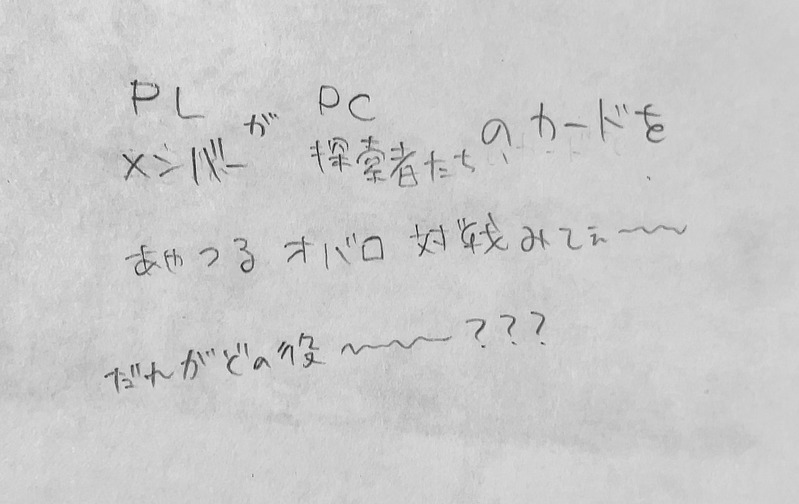 PL PC
メンバーが探索者たちのカードを
あやつるオバロ対戦みてぇ〜〜
だれがどの役〜〜〜???